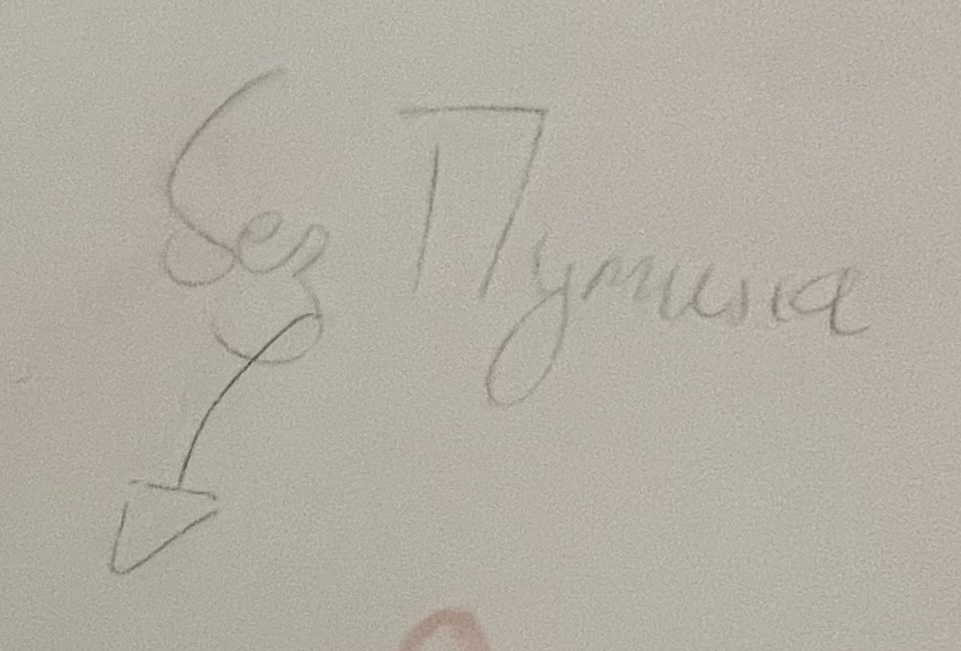 без Путина